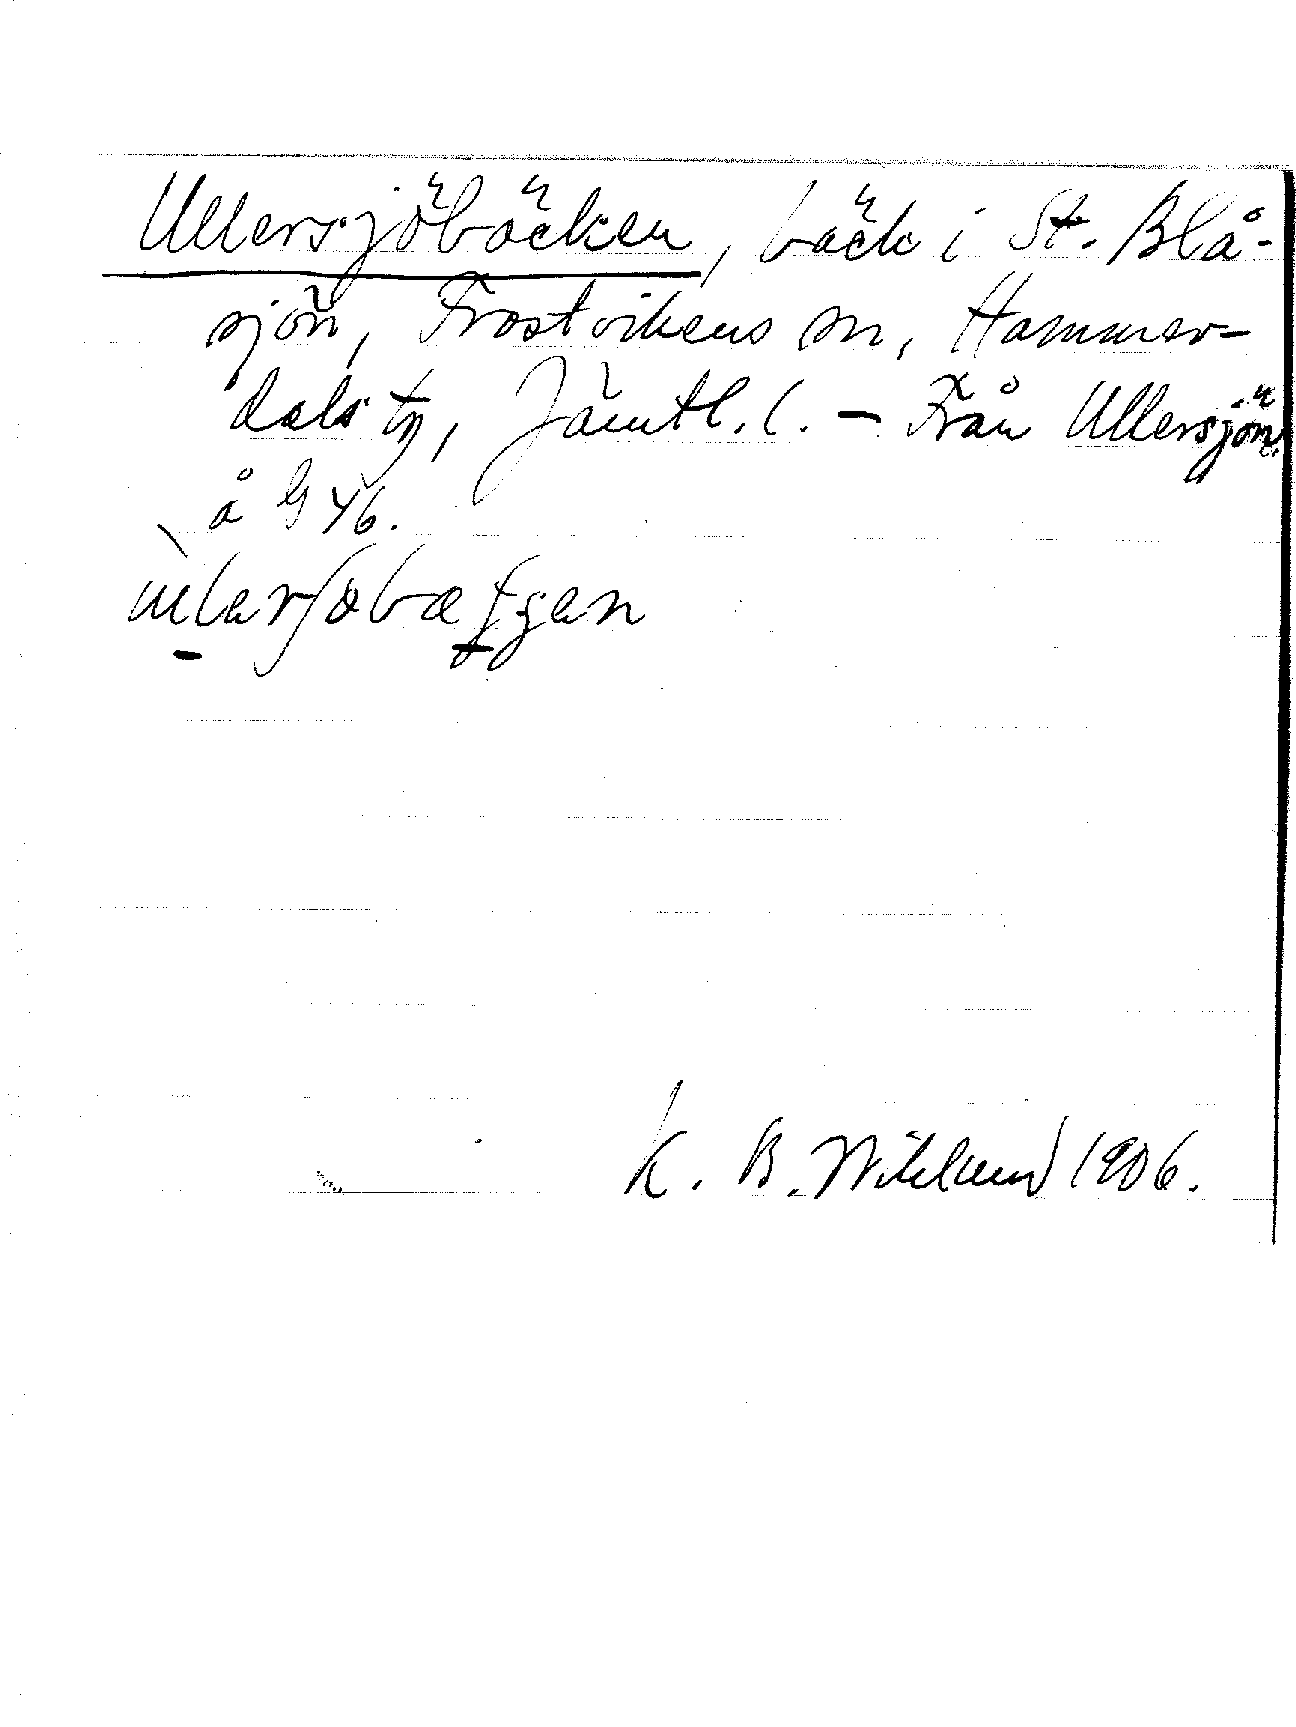 Ullersjöbäcken, bäck i St. Blå-
sjön, Frostvikens sn, Hammer-
dals tg, Jämtl. l. – Från Ullersjön.
å G 46.
K. B. Wiklund 1906.